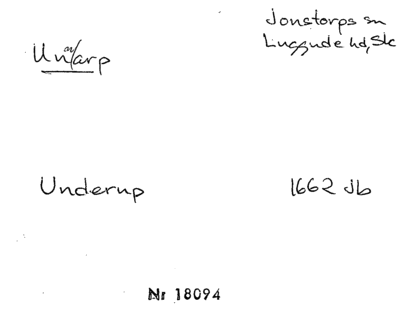 Jonstorps sn
Luggude hd, Sk
Unnarp
Underup 1662 Jb
Nr 18094